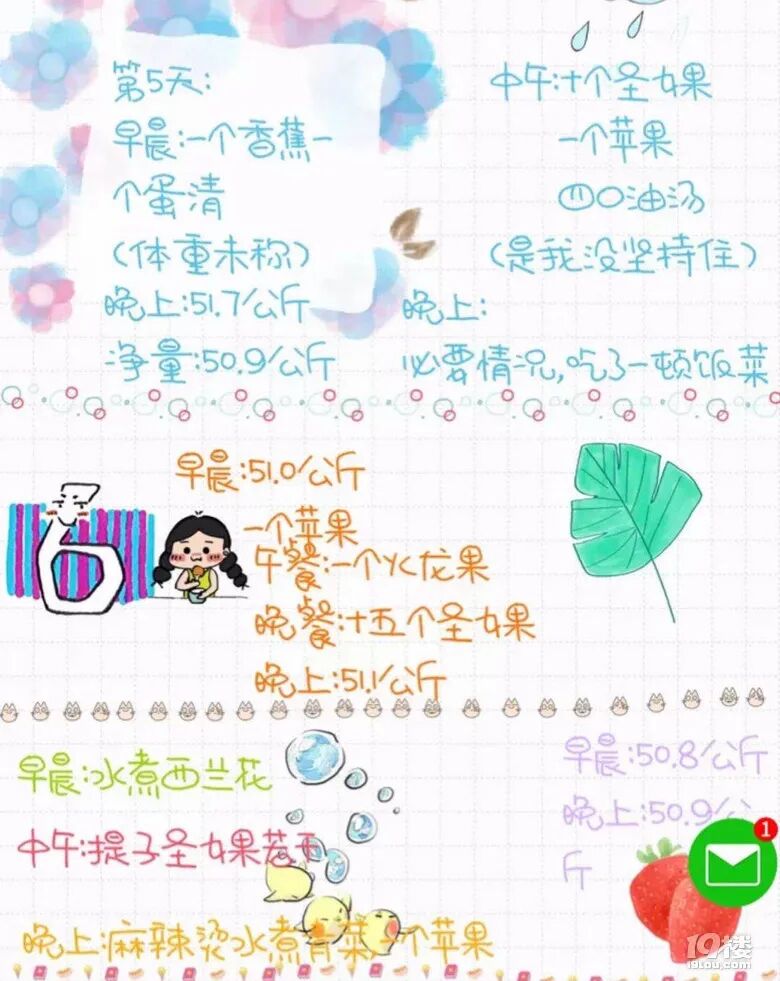 第5天:
早晨:一个香蕉一
个蛋清
(体重未称)
晚上:51.7公斤
净量:50.9公斤
中午:十个圣女果
一个苹果
四口油汤
(是我没坚持住)
晚上:
必要情况,吃了一顿饭菜
6
早晨:51.0公斤
一个苹果
午餐:一个火龙果
晚餐:十五个圣女果
晚上:51.1公斤
早晨:水煮西兰花
中午:提子圣女果
晚上:麻辣烫水煮青菜,个苹果
早晨:50.8公斤
晚上:50.9公
斤
1
19楼
19lou.com